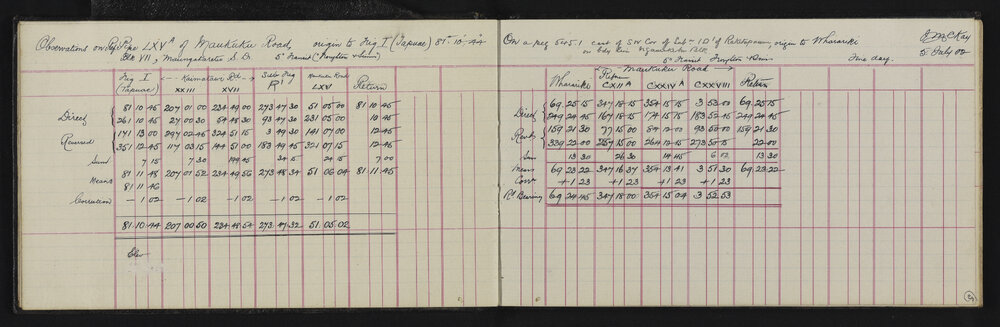 Observations on Pipe LXV A of Maukuku Road, origin to Trig I (Tapuae) 81° 10' 44"
Blk VII, Maungaharuru S.D. 5" Transit (Troughton & Simms)
Trig I Kaimatawi Rd. Sub Trig Maukuku Road Return
(Tapuae) XXIII XVII R' LXV
Direct 81 10 45 207 01 00 234 49 00 273 47 30 51 05 00 81 10 45
261 10 45 27 00 30 54 48 30 93 47 30 231 05 00 10 45
Reversed 171 13 00 297 02 45 324 51 15 3 49 30 141 07 00 12 45
351 12 45 117 03 15 144 51 00 183 49 45 321 07 15 12 45
Sum 7 15 7 30 199 45 34 15 24 15 7 00
Means 81 11 48 207 01 52 234 49 56 273 48 34 51 06 04 81 11 45
81 11 46
Correction — 1 02 — 1 02 — 1 02 — 1 02 — 1 02
81 10 44 207 00 50 234 48 54 273 47 32 51 05 02
On a peg 545.1 east of S.W. Cor of Sub<sup>n</sup> 1D' of Raktapauma, origin to Wharariki
on bdy line Ngamatea Blk
5" Transit Troughton & Simms Fine day.
E McKay
5 July 02
Maukuku Road
Wharariki CXII A CXXIV A CXXVIII Return
Direct 69 25 15 347 18 15 354 15 15 3 52 00 69 25 15
249 24 45 167 18 15 174 15 15 183 52 45 249 24 45
Rev 159 21 30 77 15 00 84 12 00 93 50 00 159 21 30
339 22 00 257 15 00 264 12 15 273 50 15 22 00
Sum 13 30 26 30 14 45 6 02 13 30
Means 69 23 22 347 16 37 354 13 41 3 51 30 69 23 22
Corr +1 23 +1 23 +1 23 +1 23
R<sup>d</sup> Bearing 69 24 45 347 18 00 354 15 04 3 52 53